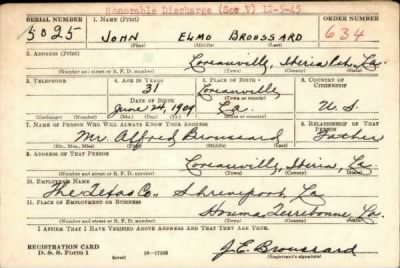 Honorable Discharge (See V) 12-5-45
SERIAL NUMBER 1. NAME (Print) ORDER NUMBER
5025 JOHN ELMO BROUSSARD 634
(First) (Middle) (Last)
2. ADDRESS (Print)
Loreauville, Iberia Pah., La.
(Number and street or R. F. D. number) (Town) (County) (State)
3. TELEPHONE 4. AGE IN YEARS 5. PLACE OF BIRTH 6. COUNTRY OF CITIZENSHIP
31 Loreauville
DATE OF BIRTH (Town or county)
June 24, 1909 La. U. S.
(Exchange) (Number) (Mo.) (Day) (Yr.) (State or country)
7. NAME OF PERSON WHO WILL ALWAYS KNOW YOUR ADDRESS 8. RELATIONSHIP OF THAT PERSON
Mr. Alfred Broussard Father
(Mr., Mrs., Miss) (First) (Middle) (Last)
9. ADDRESS OF THAT PERSON
Loreauville, Iberia, La.
(Number and street or R. F. D. number) (Town) (County) (State)
10. EMPLOYER'S NAME
The Texas Co. Shreveport La
11. PLACE OF EMPLOYMENT OR BUSINESS
Houma Terrebonne, La.
(Number and street or R. F. D. number) (Town) (County) (State)
I AFFIRM THAT I HAVE VERIFIED ABOVE ANSWERS AND THAT THEY ARE TRUE.
REGISTRATION CARD
D. S. S. Form 1 (over) 16—17105 J. E. Broussard
(Registrant's signature)